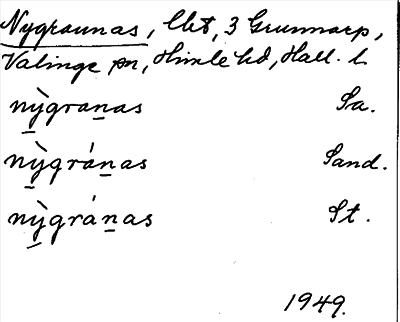 Nygraunas, lht, 3 Grunnarp,
Valinge sn, Himle hd, Hall. l.
nỳgranas Sa.
nỳgránas Sand.
nỳgránas St.
1949.